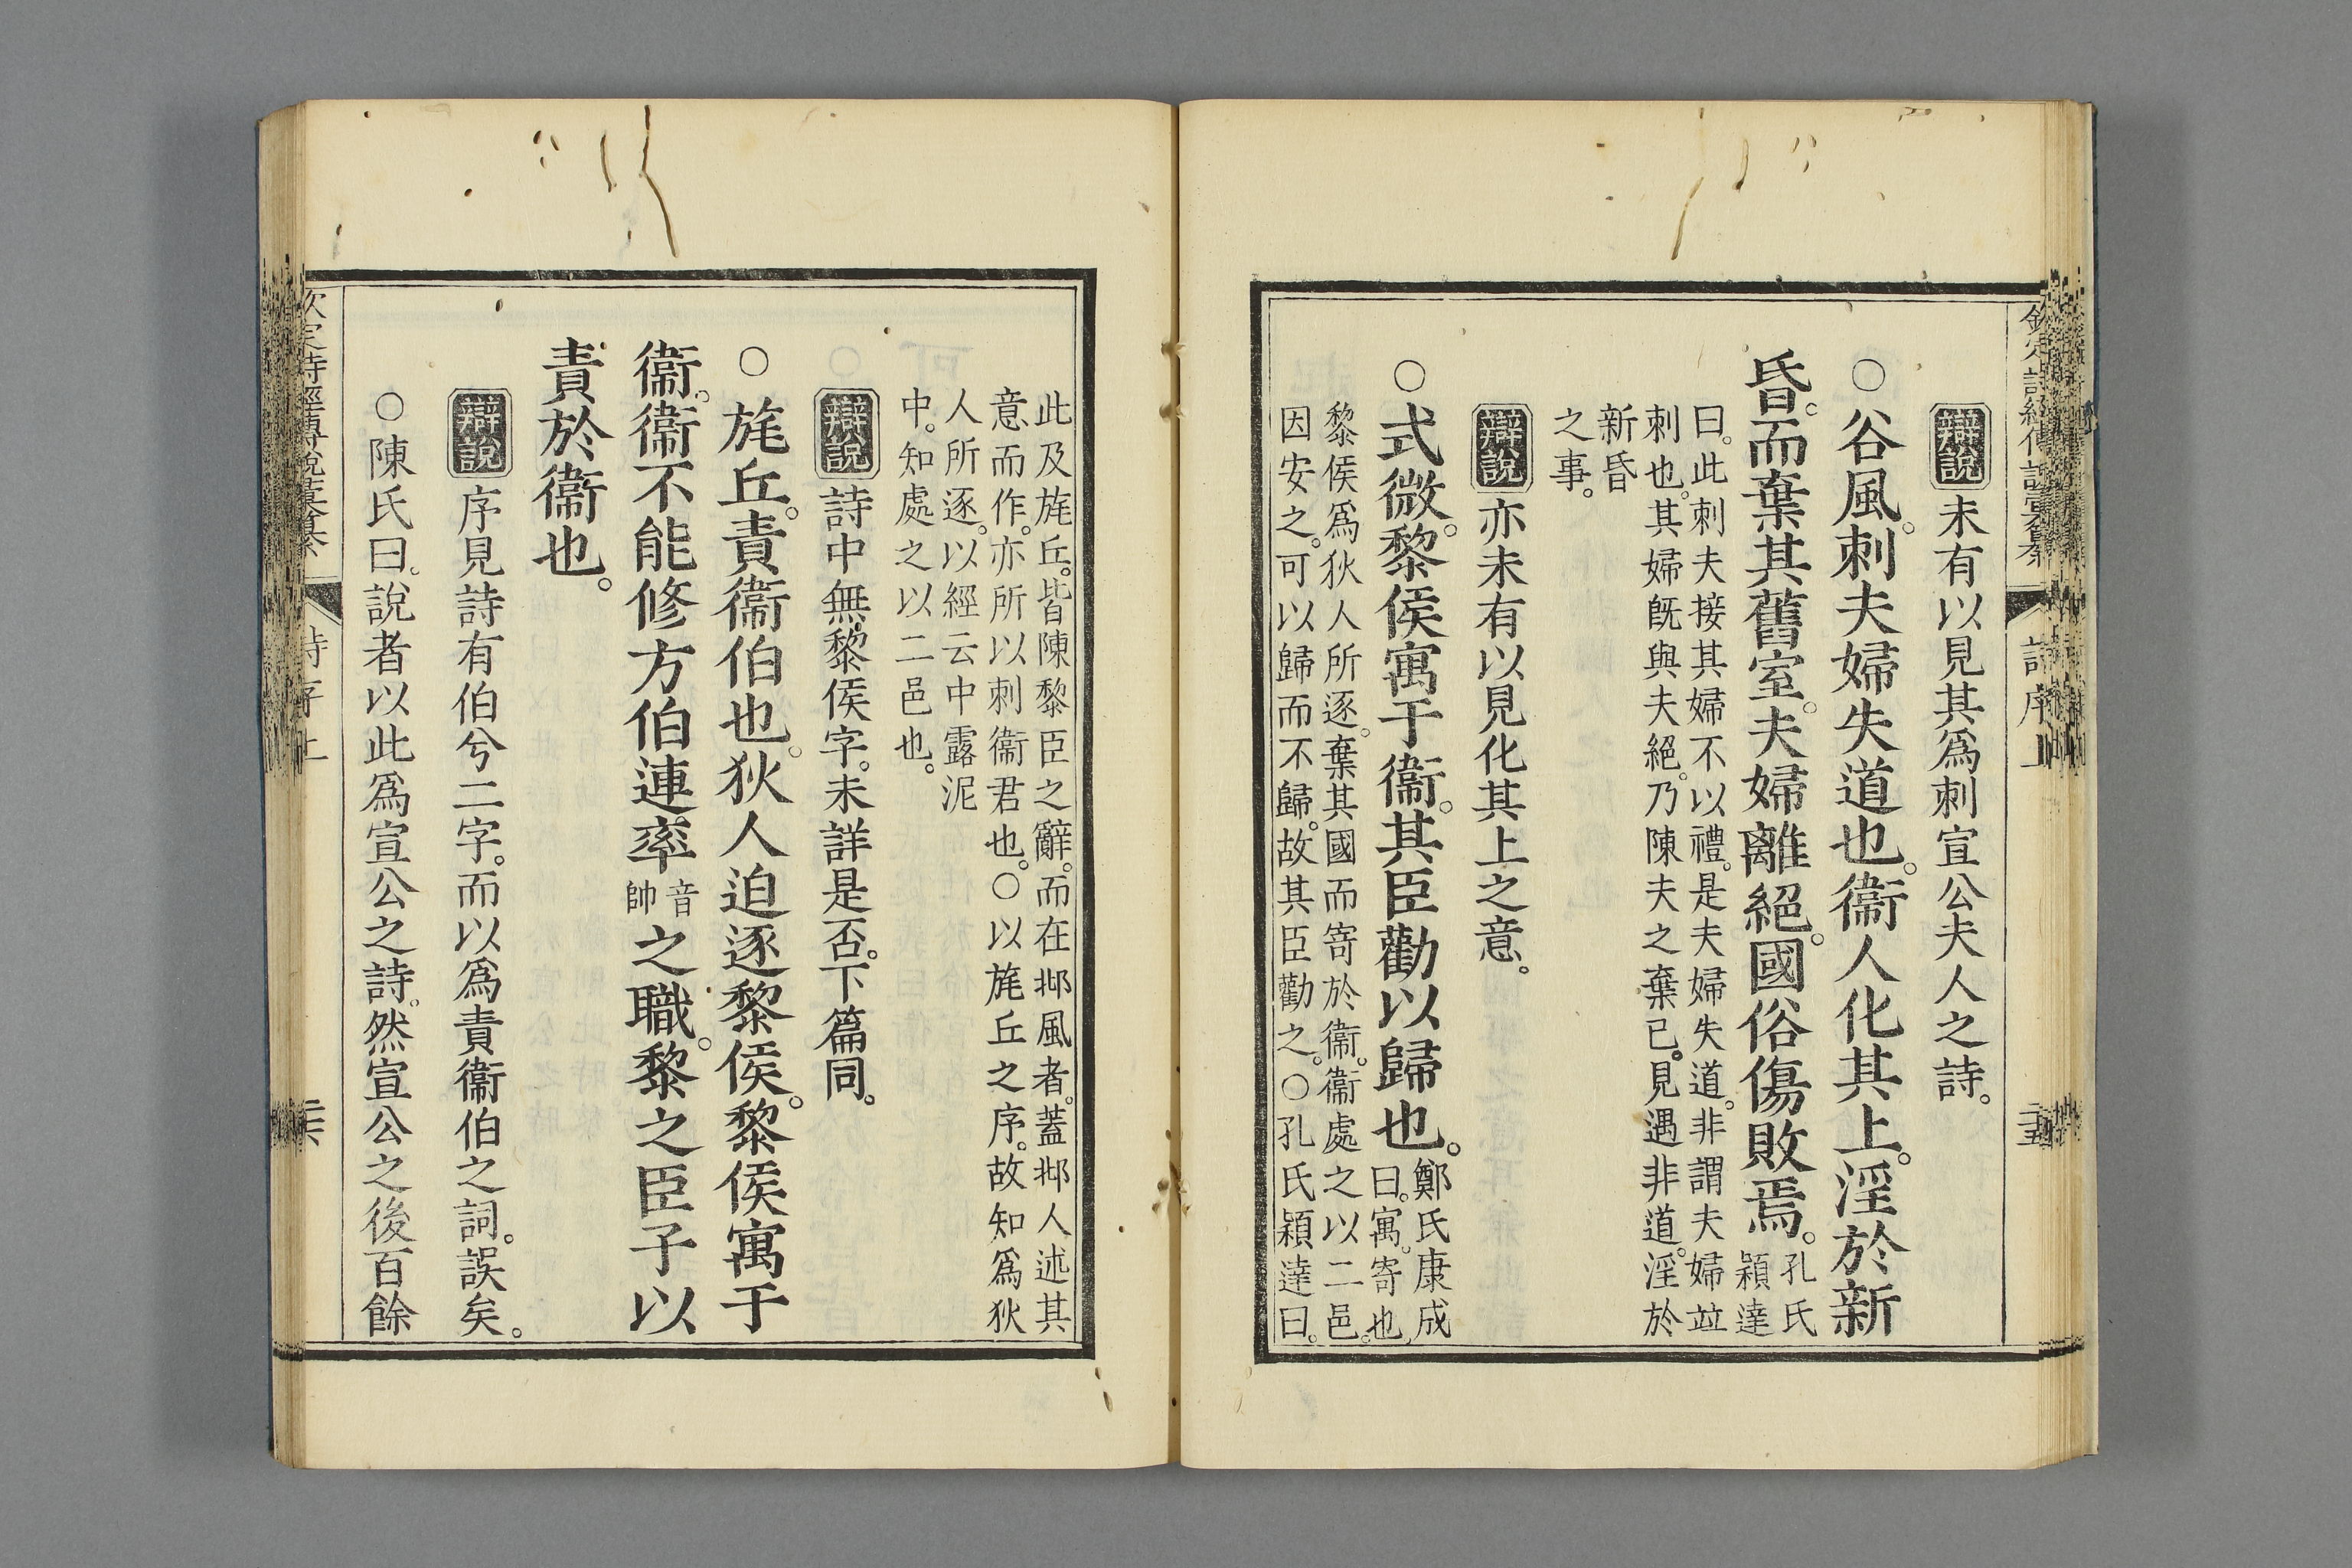 辯說未有以見其爲刺宣公夫人之詩。
○谷風。刺夫婦失道也。衞人化其上。淫於新
昏。而棄其舊室。夫婦離絕。國俗傷敗焉。孔氏
穎達
曰。此刺夫接其婦不以禮。是夫婦失道。非謂夫婦竝
刺也。其婦旣與夫絕。乃陳夫之棄已。見遇非道。淫於
新昏
之事。
辯說亦未有以見化其上之意。
○式微。黎侯寓于衞。其臣勸以歸也。鄭氏康成
曰。寓。寄也。
黎侯爲狄人所逐。棄其國而寄於衞。衞處之以二邑。
因安之。可以歸而不歸。故其臣勸之。○孔氏穎達曰。
此及旄丘。皆陳黎臣之辭。而在邶風者。蓋邶人述其
意而作。亦所以刺衞君也。○以旄丘之序。故知爲狄
人所逐。以經云中露泥
中。知處之以二邑也。
辯說詩中無黎侯字。未詳是否。下篇同。
○旄丘。責衞伯也。狄人迫逐黎侯。黎侯寓于
衞。衞不能修方伯連率音
帥之職。黎之臣子以
責於衞也。
辯說序見詩有伯兮二字。而以爲責衞伯之詞。誤矣。
○陳氏曰。說者以此爲宣公之詩。然宣公之後百餘
欽定詩經傳說彙纂
詩序上